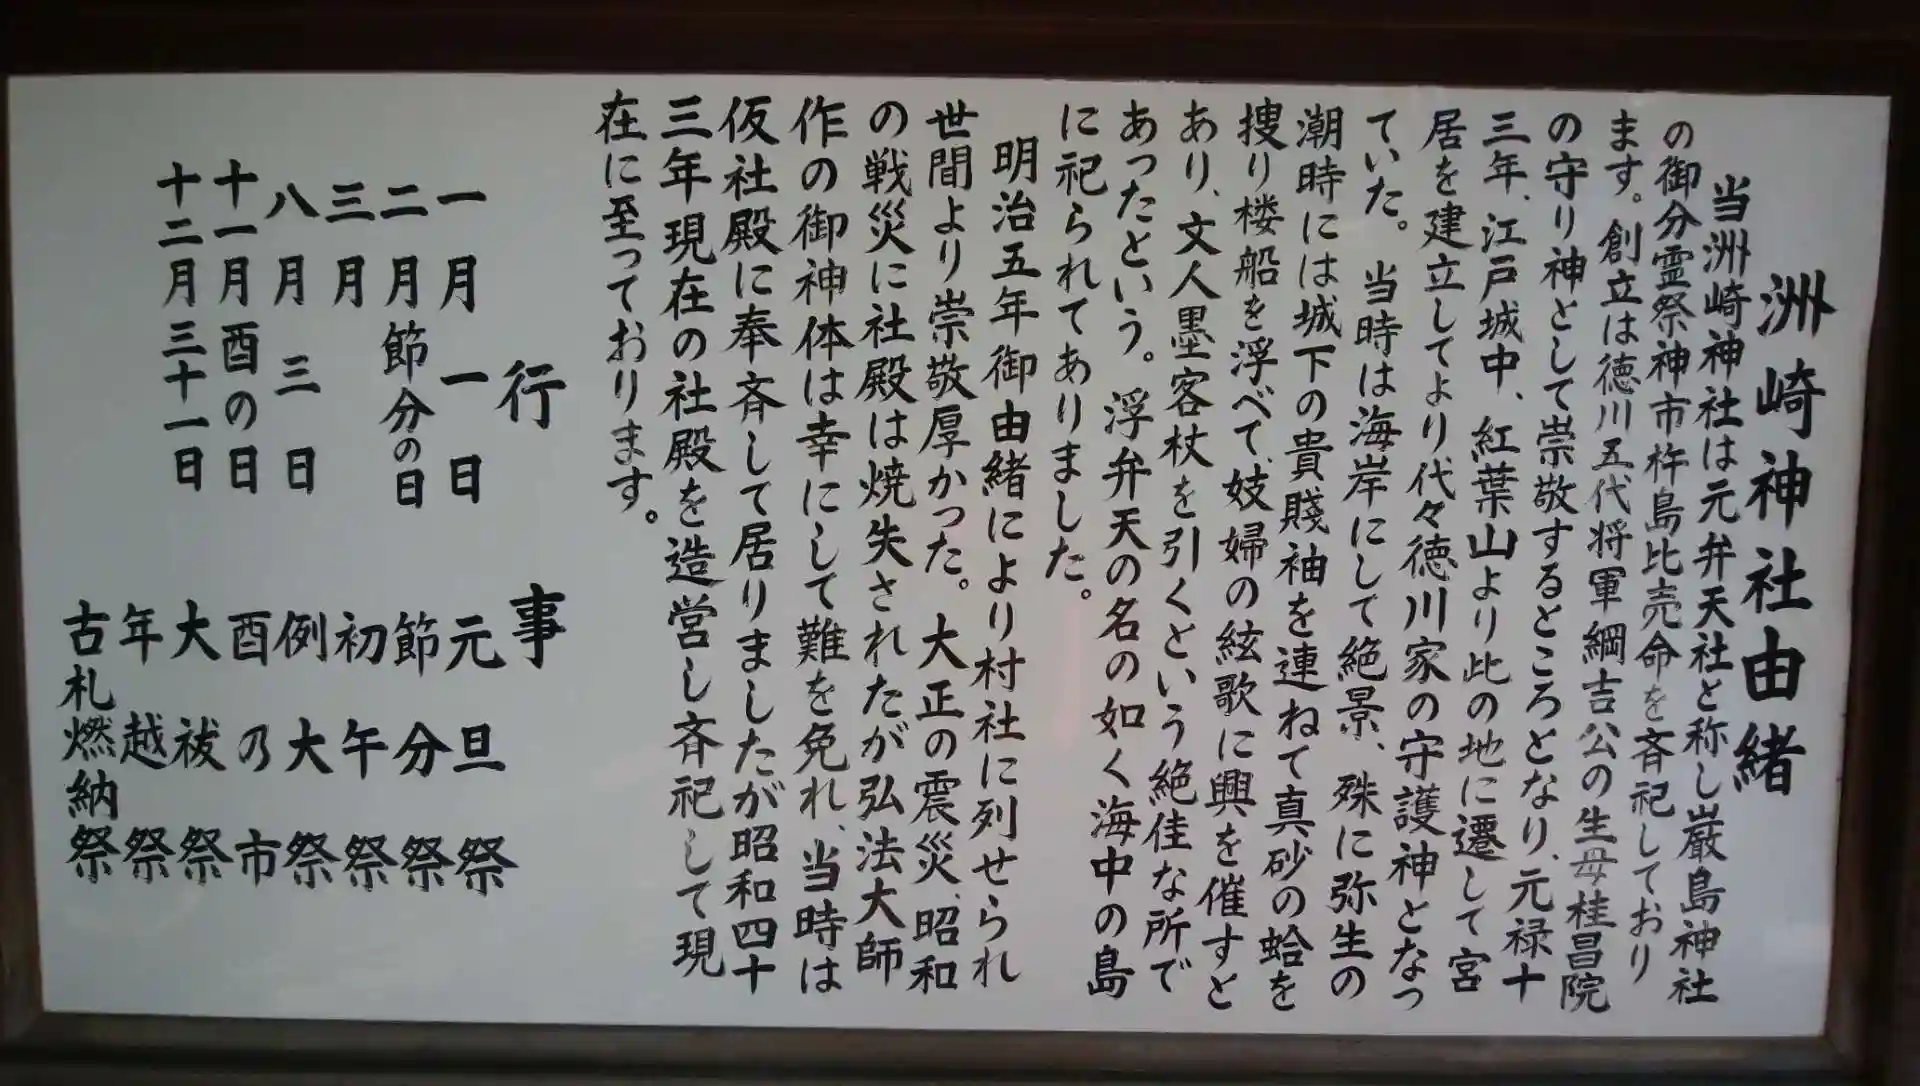 洲崎神社由緒
当洲崎神社は元弁天社と称し厳島神社
の御分霊祭神市杵島比売命を斉祀しており
ます。創立は徳川五代将軍綱吉公の生母桂昌院
の守り神として崇敬するところとなり、元禄十
三年、江戸城中、紅葉山より此の地に遷して宮
居を建立してより代々徳川家の守護神となっ
ていた。当時は海岸にして絶景、殊に弥生の
潮時には城下の貴賤袖を連ねて真砂の蛤を
捜り楼船を浮べて、妓婦の絃歌に興を催すと
あり、文人墨客杖を引くという絶佳な所で
あったという。浮弁天の名の如く海中の島
に祀られてありました。
明治五年御由緒により村社に列せられ
世間より崇敬厚かった。大正の震災、昭和
の戦災に社殿は焼失されたが弘法大師
作の御神体は幸にして難を免れ、当時は
仮社殿に奉斉して居りましたが昭和四十
三年現在の社殿を造営し斉祀して現
在に至っております。
行事
一月一日 元旦祭
二月節分の日 節分祭
三月 初午祭
八月三日 例大祭
十一月酉の日 酉乃市
十二月三十一日 大祓祭
年越祭
古札燃納祭